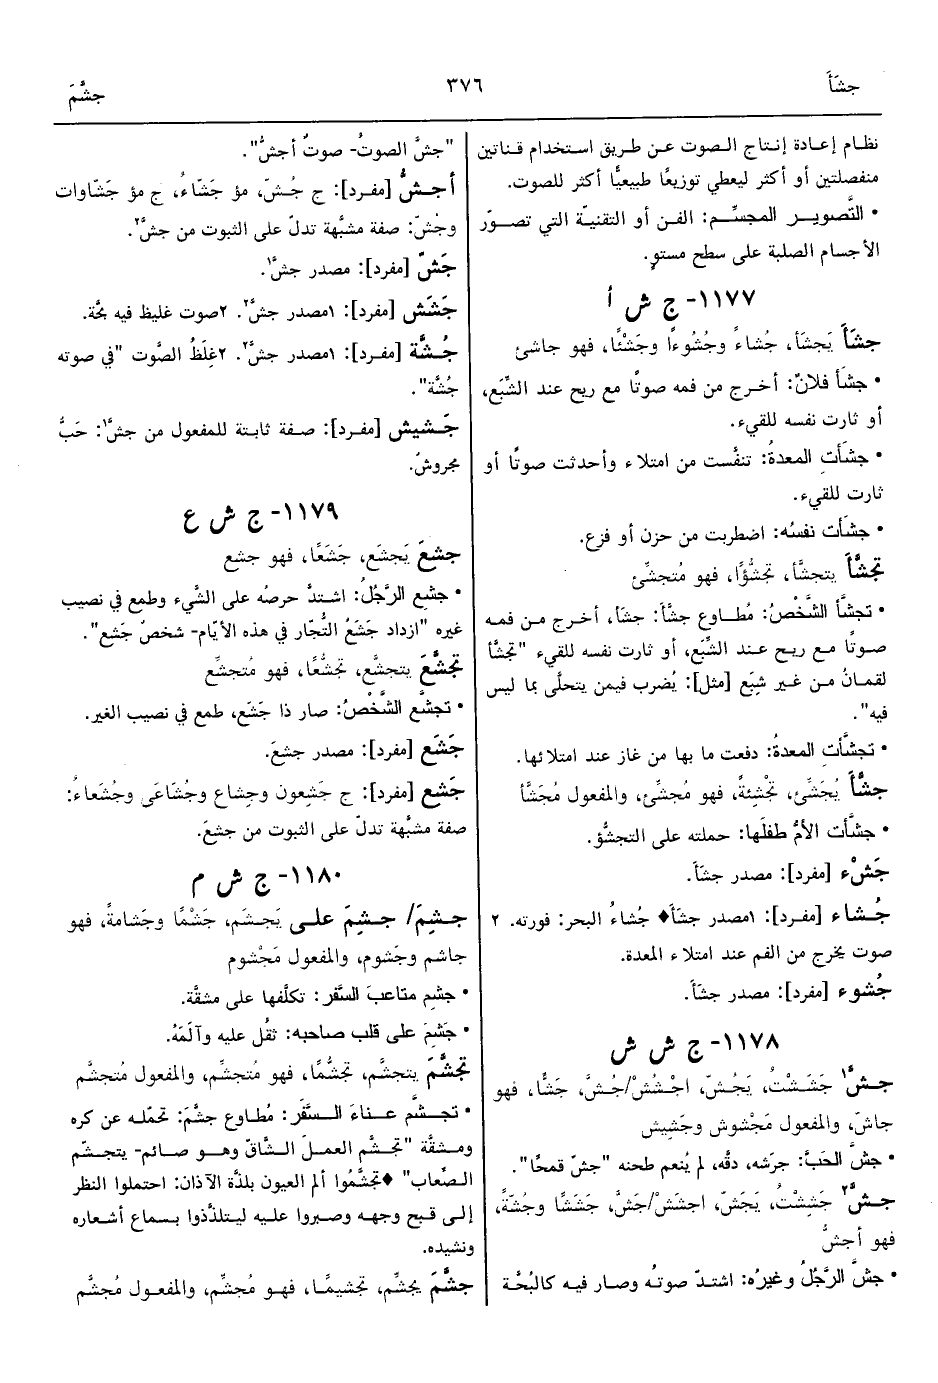 جشَأَ
٣٧٦
جشَّمَ
نظام إعادة إنتاج الصوت عن طريق استخدام قناتين
منفصلتين أو أكثر ليعطي توزيعًا طبيعيًّا أكثر للصوت.
• التَّصوير المجسِّم: الفن أو التقنيّة التي تصوّر
الأجسام الصلبة على سطح مستوٍ.
١١٧٧- ج ش أ
جشَأَ يَجشَأ، جُشاءً وجُشُوءاً وجَشْئًا، فهو جاشئ
• جشَأ فلانٌ: أخرج من فمه صوتًا مع ريح عند الشِّبَع،
أو ثارت نفسه للقيء.
• جشَأت المعدةُ: تنفَّست من امتلاء وأحدثت صوتًا أو
ثارت للقيء.
• جشَأت نفسُه: اضطربت من حزن أو فزع.
تجشَّأَ يتجشَّأ، تجشُّؤًا، فهو مُتجشِّئ
• تجشَّأ الشَّخْصُ: مُطاوع جشَّأ: جشَأ، أخرج من فمه
صوتًا مع ريح عند الشِّبَع، أو ثارت نفسه للقيء "تجشَّأ
لقمانُ من غير شِبَع [مثل]: يُضرب فيمن يتحلَّى بما ليس
فيه".
• تجشَّأت المعدةُ: دفعت ما بها من غاز عند امتلائها.
جشَّأَ يُجَشِّئ، تجْشِئةً، فهو مُجشِّئ، والمفعول مُجَشَّأ
• جشَّأت الأمُّ طفلَها: حملته على التجشُّؤ.
جَشْء [مفرد]: مصدر جشَأَ.
جُشاء [مفرد]: ١مصدر جشَأَ♦ جُشاءُ البحر: فورته. ٢
صوت يخرج من الفم عند امتلاء المعدة.
جُشوء [مفرد]: مصدر جشَأَ.
١١٧٨- ج ش ش
جشَّ١ جَشَشْتُ، يَجُشّ، اجْشُشْ/جُشَّ، جَشًّا، فهو
جاشّ، والمفعول مَجْشوش وجَشِيش
• جشَّ الحَبَّ: جرَشه، دقَّه، لم يُنعم طحنه "جشّ قمحًا".
جشَّ٢ جَشِشْتُ، يَجَشّ، اجشَشْ/جَشَّ، جَشَشًا وجُشّةً،
فهو أجشُّ
• جشَّ الرَّجُلُ وغيرُه: اشتدّ صوتُه وصار فيه كالبُحَّة
"جشَّ الصوتُ- صوتٌ أجشُّ".
أجشُّ [مفرد]: ج جُشّ، مؤ جَشّاءُ، ج مؤ جَشّاوات
وجُشّ: صفة مشبَّهة تدلّ على الثبوت من جشَّ٢.
جَشّ [مفرد]: مصدر جشَّ١.
جَشَش [مفرد]: ١مصدر جشَّ٢. ٢صوت غليظ فيه بحَّة.
جُشَّة [مفرد]: ١مصدر جشَّ٢. ٢غِلَظُ الصَّوت "في صوته
جُشَّة".
جَشيش [مفرد]: صفة ثابتة للمفعول من جشَّ١: حَبٌّ
مجروش.
١١٧٩- ج ش ع
جشِعَ يَجشَع، جَشَعًا، فهو جشِع
• جشِع الرَّجُلُ: اشتدَّ حرصُه على الشَّيء وطمع في نصيب
غيره "ازداد جَشَعُ التُّجّار في هذه الأيّام- شخصٌ جَشِع".
تجشَّعَ يتجشَّع، تجشُّعًا، فهو مُتجشِّع
• تجشَّع الشَّخْصُ: صار ذا جَشَع، طمع في نصيب الغير.
جَشَع [مفرد]: مصدر جشِعَ.
جَشِع [مفرد]: ج جَشِعون وجِشاع وجُشَاعَى وجُشَعاءُ:
صفة مشبَّهة تدلّ على الثبوت من جشِعَ.
١١٨٠- ج ش م
جشِمَ/ جشِمَ على يَجشَم، جَشْمًا وجَشامةً، فهو
جاشم وجَشوم، والمفعول مَجْشوم
• جشِم متاعبَ السَّفَر: تكلَّفها على مشقَّة.
• جَشِمَ على قلب صاحبه: ثقُل عليه وآلَمَهُ.
تجشَّمَ يتجشَّم، تجشُّمًا، فهو مُتجشِّم، والمفعول مُتجشَّم
• تجشَّم عناءَ السَّفَر: مُطاوع جشَّمَ: تحمّله عن كره
ومشقَّة "تجشَّم العملَ الشَّاقّ وهو صائم- يتجشَّم
الصِّعاب" ♦تجشَّمُوا ألم العيون بلذَّة الآذان: احتملوا النظر
إلى قبح وجهه وصبروا عليه ليتلذَّذوا بسماع أشعاره
ونشيده.
جشَّمَ يجشِّم، تجشيمًا، فهو مُجشِّم، والمفعول مُجشَّم